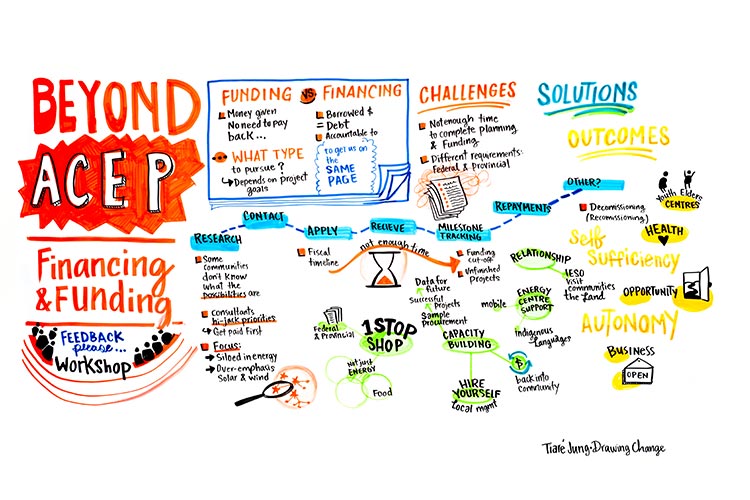 BEYOND
ACEP
Financing
& Funding
FEEDBACK
please...
Workshop
FUNDING VS. FINANCING
Money given
No need to pay
back...
Borrowed $
= Debt
Accountable to
WHAT TYPE
to pursue?
↳ Depends on project
goals
to get us on
the
SAME
PAGE
CHALLENGES
Not enough time
to complete planning
& Funding
Different requirements:
Federal & Provincial
SOLUTIONS
OUTCOMES
RESEARCH
CONTACT
APPLY
RECIEVE
MILESTONE
TRACKING
REPAYMENTS
OTHER?
Some
communities
don't know
what the
possibilities are
Consultants
hi-jack priorities
↳ Get paid First
Focus:
→ Siloed in energy
→ Over-emphasis
Solar & wind
Fiscal
timeline
not enough time
Funding
cut-off
Unfinished
Projects
Decomissioning
(Recomissioning)
Federal
& Provincial
1 STOP
SHOP
Not just
ENERGY
Food
Data for
future
Successful
Projects
Sample
procurement
CAPACITY
BUILDING
HIRE
YOURSELF
Local mgmt
$
back into
community
RELATIONSHIP
IESO
Visit
communities
the Land
mobile
ENERGY
CENTRE
SUPPORT
Indigenous
Languages
Youth Elders
CENTRES
HEALTH
Self
Sufficiency
OPPORTUNITY
AUTONOMY
BUSINESS
OPEN
Tiaré Jung · Drawing Change